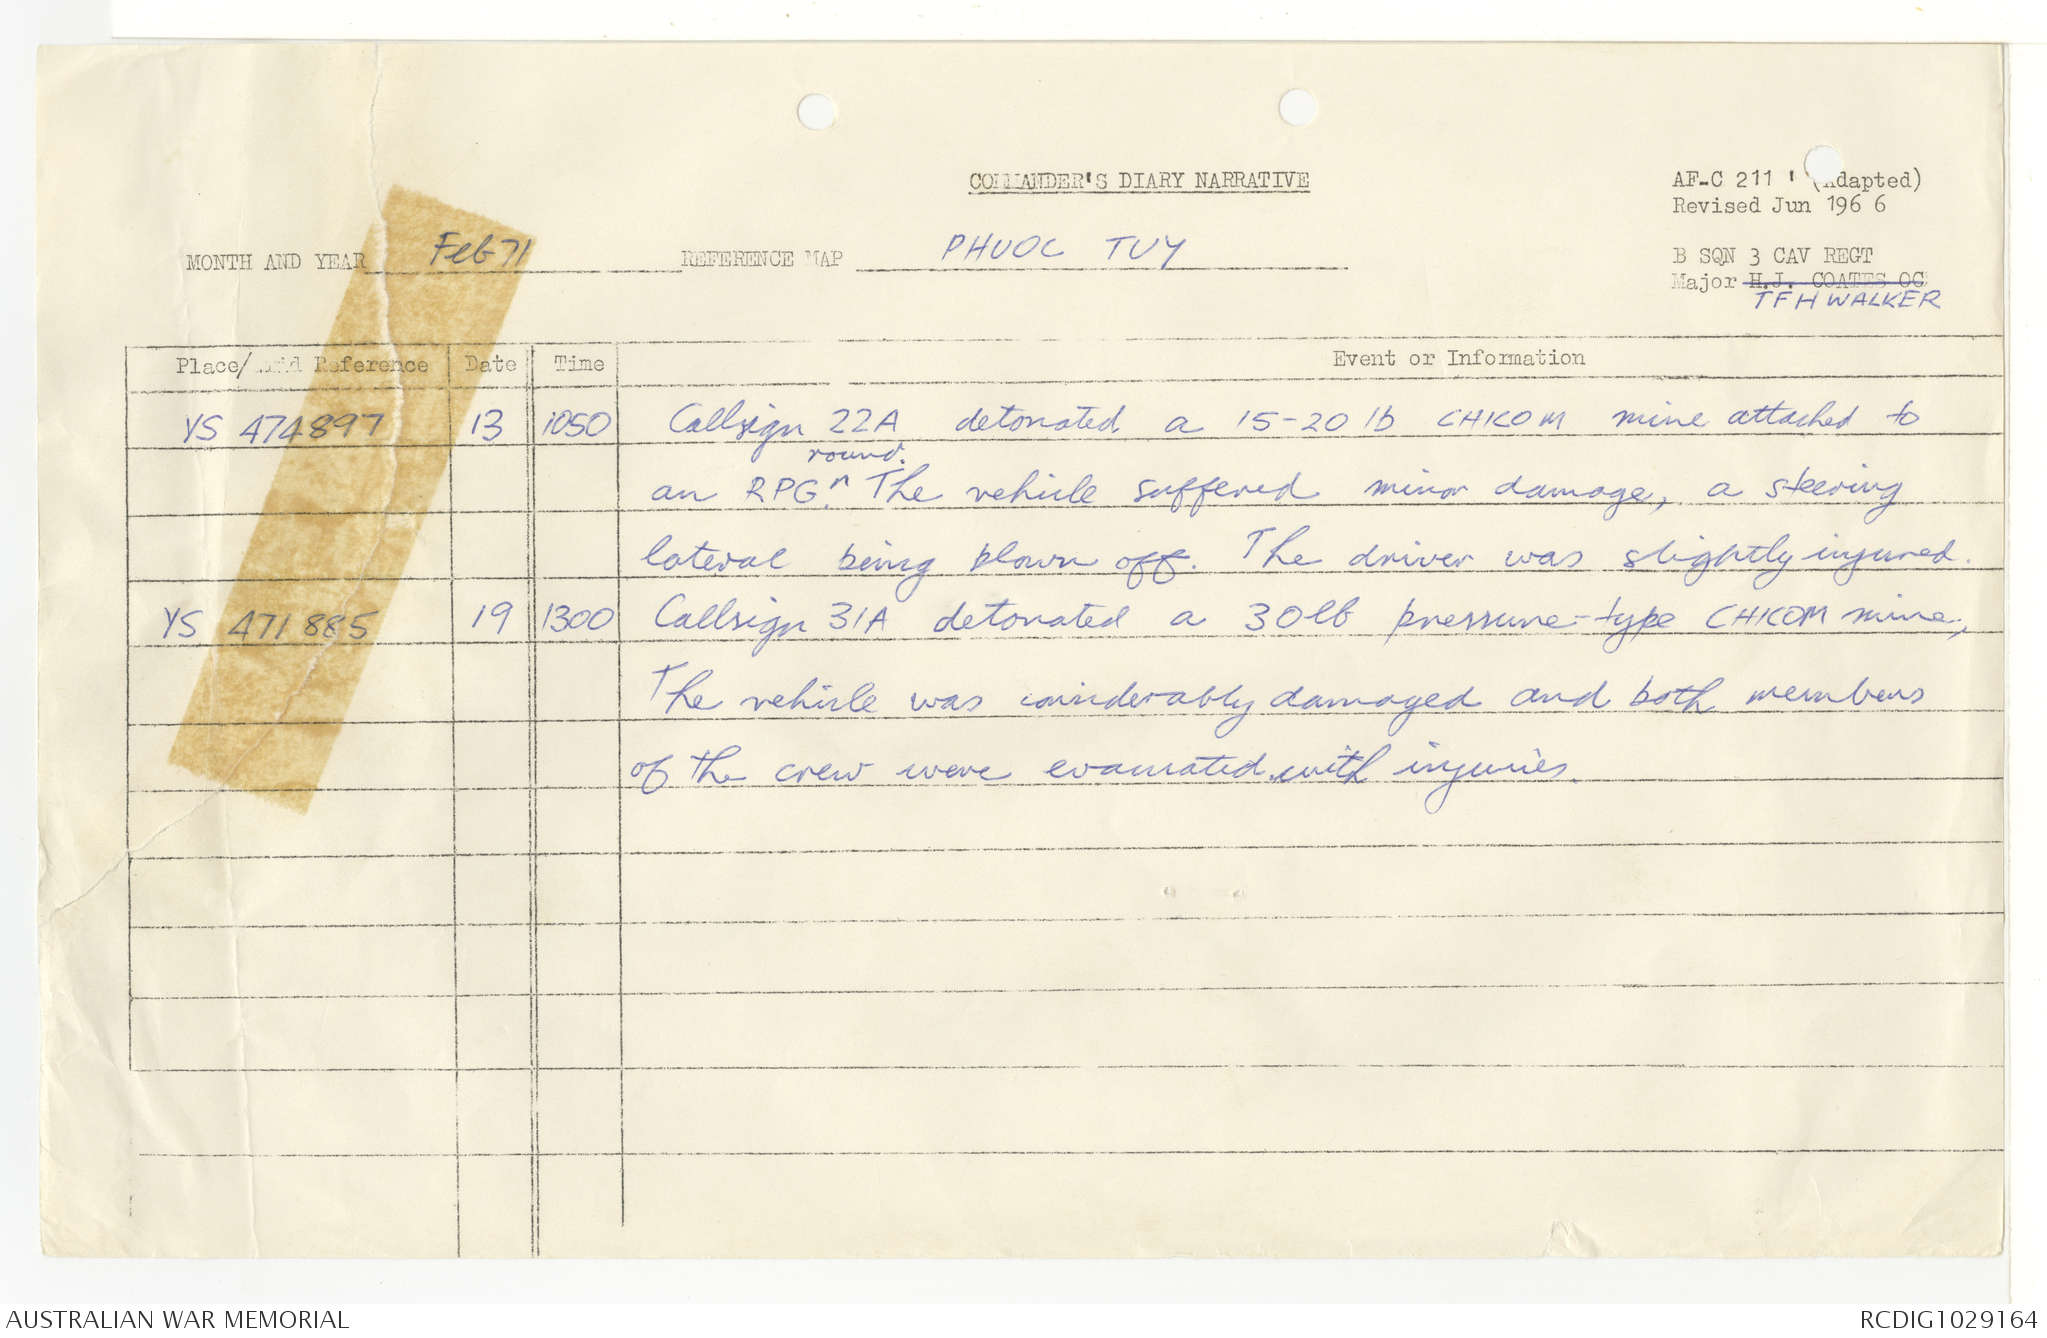 COMMANDER'S DIARY NARRATIVE
AF-C 211 (Adapted)
Revised Jun 1966
MONTH AND YEAR Feb 71 REFERENCE MAP PHUOC TUY
B SQN 3 CAV REGT
Major H.J. COATES OC
TFH WALKER
Place/Grid Reference Date Time Event or Information
YS 474897 13 1050 Callsign 22A detonated a 15-20 lb CHICOM mine attached to
round.
an RPG. The vehicle suffered minor damage, a steering
lateral being blown off. The driver was slightly injured.
YS 471885 19 1300 Callsign 31A detonated a 30lb pressure-type CHICOM mine,
The vehicle was considerably damaged and both members
of the crew were evacuated with injuries.
AUSTRALIAN WAR MEMORIAL
RCDIG1029164